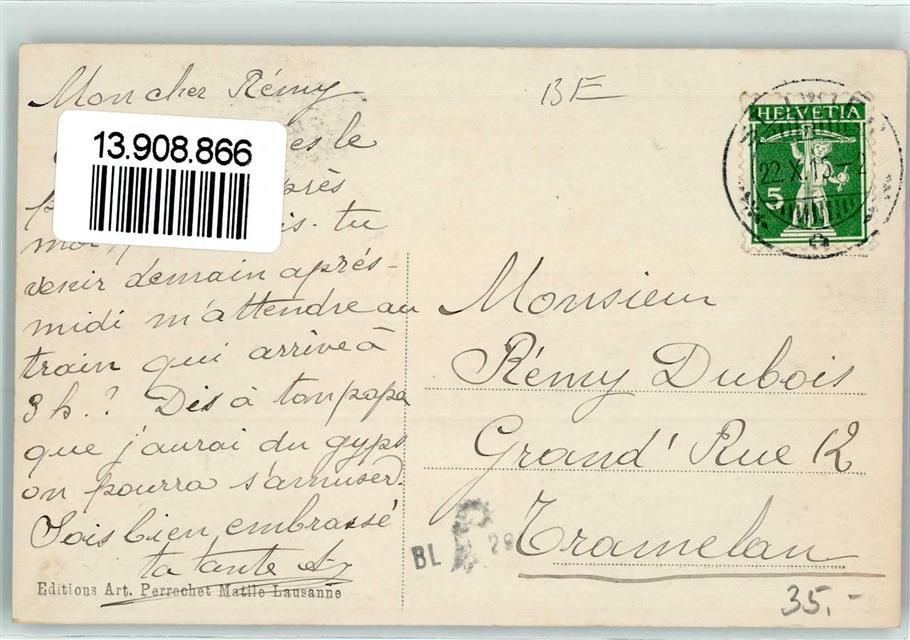 Mon cher Rémy
es le
près
is-tu
venir demain après-
midi m'attendre au
train qui arrive à
3 h.? Dis à ton papa
que j'aurai du gyps
on pourra s'amuser.
Sois bien embrassé
ta tante
Editions Art. Perrochet Matile Lausanne
13.908.866
BE
HELVETIA
5
22.X.15.-2
Monsieur
Rémy Dubois
Grand' Rue 12
Tramelan
BL
35.-